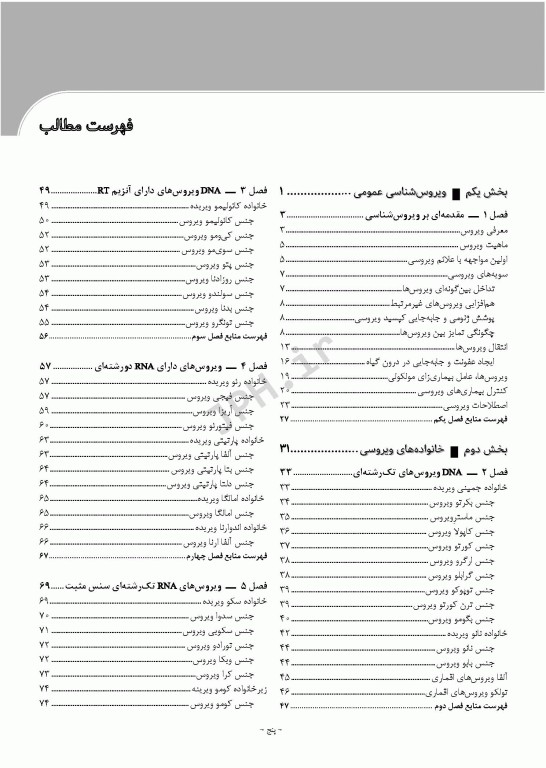 فهرست مطالب
بخش یکم ■ ویروس‌شناسی عمومی ................... ۱
فصل ۱ ـــ مقدمه‌ای بر ویروس‌شناسی ................... ۳
معرفی ویروس ................... ۳
ماهیت ویروس ................... ۵
اولین مواجهه با علائم ویروسی ................... ۵
سویه‌های ویروسی ................... ۷
تداخل بین‌گونه‌ای ویروس‌ها ................... ۷
هم‌افزایی ویروس‌های غیرمرتبط ................... ۸
پوشش ژنومی و جابه‌جایی کپسید ویروسی ................... ۸
چگونگی تمایز بین ویروس‌ها ................... ۸
انتقال ویروس‌ها ................... ۱۳
ایجاد عفونت و جابه‌جایی در درون گیاه ................... ۱۶
ویروس‌ها، عامل بیماری‌زای مولکولی ................... ۱۹
کنترل بیماری‌های ویروسی ................... ۲۰
اصطلاحات ویروسی ................... ۲۳
فهرست منابع فصل یکم ................... ۲۷
بخش دوم ■ خانواده‌های ویروسی ................... ۳۱
فصل ۲ ـــ DNA ویروس‌های تک‌رشته‌ای ................... ۳۳
خانواده جمینی ویریده ................... ۳۳
جنس بکرتو ویروس ................... ۳۴
جنس ماسترویروس ................... ۳۵
جنس کاپولا ویروس ................... ۳۶
جنس کورتو ویروس ................... ۳۷
جنس اراگرو ویروس ................... ۳۸
جنس گرابلو ویروس ................... ۳۸
جنس توپوکو ویروس ................... ۳۹
جنس ترن کورتو ویروس ................... ۳۹
جنس بگومو ویروس ................... ۴۰
خانواده نانو ویریده ................... ۴۲
جنس نانو ویروس ................... ۴۴
جنس بابو ویروس ................... ۴۴
آلفا ویروس‌های اقماری ................... ۴۵
تولکو ویروس‌های اقماری ................... ۴۶
فهرست منابع فصل دوم ................... ۴۷
فصل ۳ ـــ DNA ویروس‌های دارای آنزیم RT ................... ۴۹
خانواده کائولیمو ویریده ................... ۴۹
جنس کائولیمو ویروس ................... ۵۰
جنس کی‌ومو ویروس ................... ۵۲
جنس سوی‌مو ویروس ................... ۵۲
جنس پتو ویروس ................... ۵۳
جنس روزادنا ویروس ................... ۵۳
جنس سولندو ویروس ................... ۵۴
جنس بدنا ویروس ................... ۵۴
جنس تونگرو ویروس ................... ۵۵
فهرست منابع فصل سوم ................... ۵۶
فصل ۴ ـــ ویروس‌های دارای RNA دورشته‌ای ................... ۵۷
خانواده رئو ویریده ................... ۵۷
جنس فیجی ویروس ................... ۵۷
جنس اریزا ویروس ................... ۵۹
جنس فیتورئو ویروس ................... ۶۰
خانواده پارتیتی ویریده ................... ۶۳
جنس آلفا پارتیتی ویروس ................... ۶۳
جنس بتا پارتیتی ویروس ................... ۶۴
جنس دلتا پارتیتی ویروس ................... ۶۴
خانواده امالگا ویریده ................... ۶۵
جنس امالگا ویروس ................... ۶۵
خانواده اندوارنا ویریده ................... ۶۶
جنس آلفا ارنا ویروس ................... ۶۶
فهرست منابع فصل چهارم ................... ۶۷
فصل ۵ ـــ ویروس‌های RNA تک‌رشته‌ای سنس مثبت ...... ۶۹
خانواده سکو ویریده ................... ۶۹
جنس سدوا ویروس ................... ۷۰
جنس سکویی ویروس ................... ۷۱
جنس تورادو ویروس ................... ۷۲
جنس ویکا ویروس ................... ۷۲
جنس کرا ویروس ................... ۷۳
زیرخانواده کومو ویرینه ................... ۷۴
جنس کومو ویروس ................... ۷۴
~ پنج ~